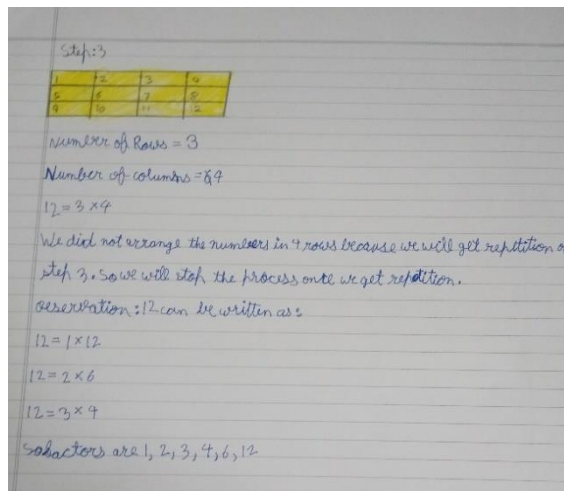 Step:3
1 2 3 4
5 6 7 8
9 10 11 12
Number of Rows = 3
Number of columns = 4
12 = 3 x 4
We did not arrange the numbers in 4 rows because we will get repetition o
step 3. So we will stop the process once we get repetition.
Observation : 12 can be written as :
12 = 1 x 12
12 = 2 x 6
12 = 3 x 4
are 1, 2, 3, 4, 6, 12